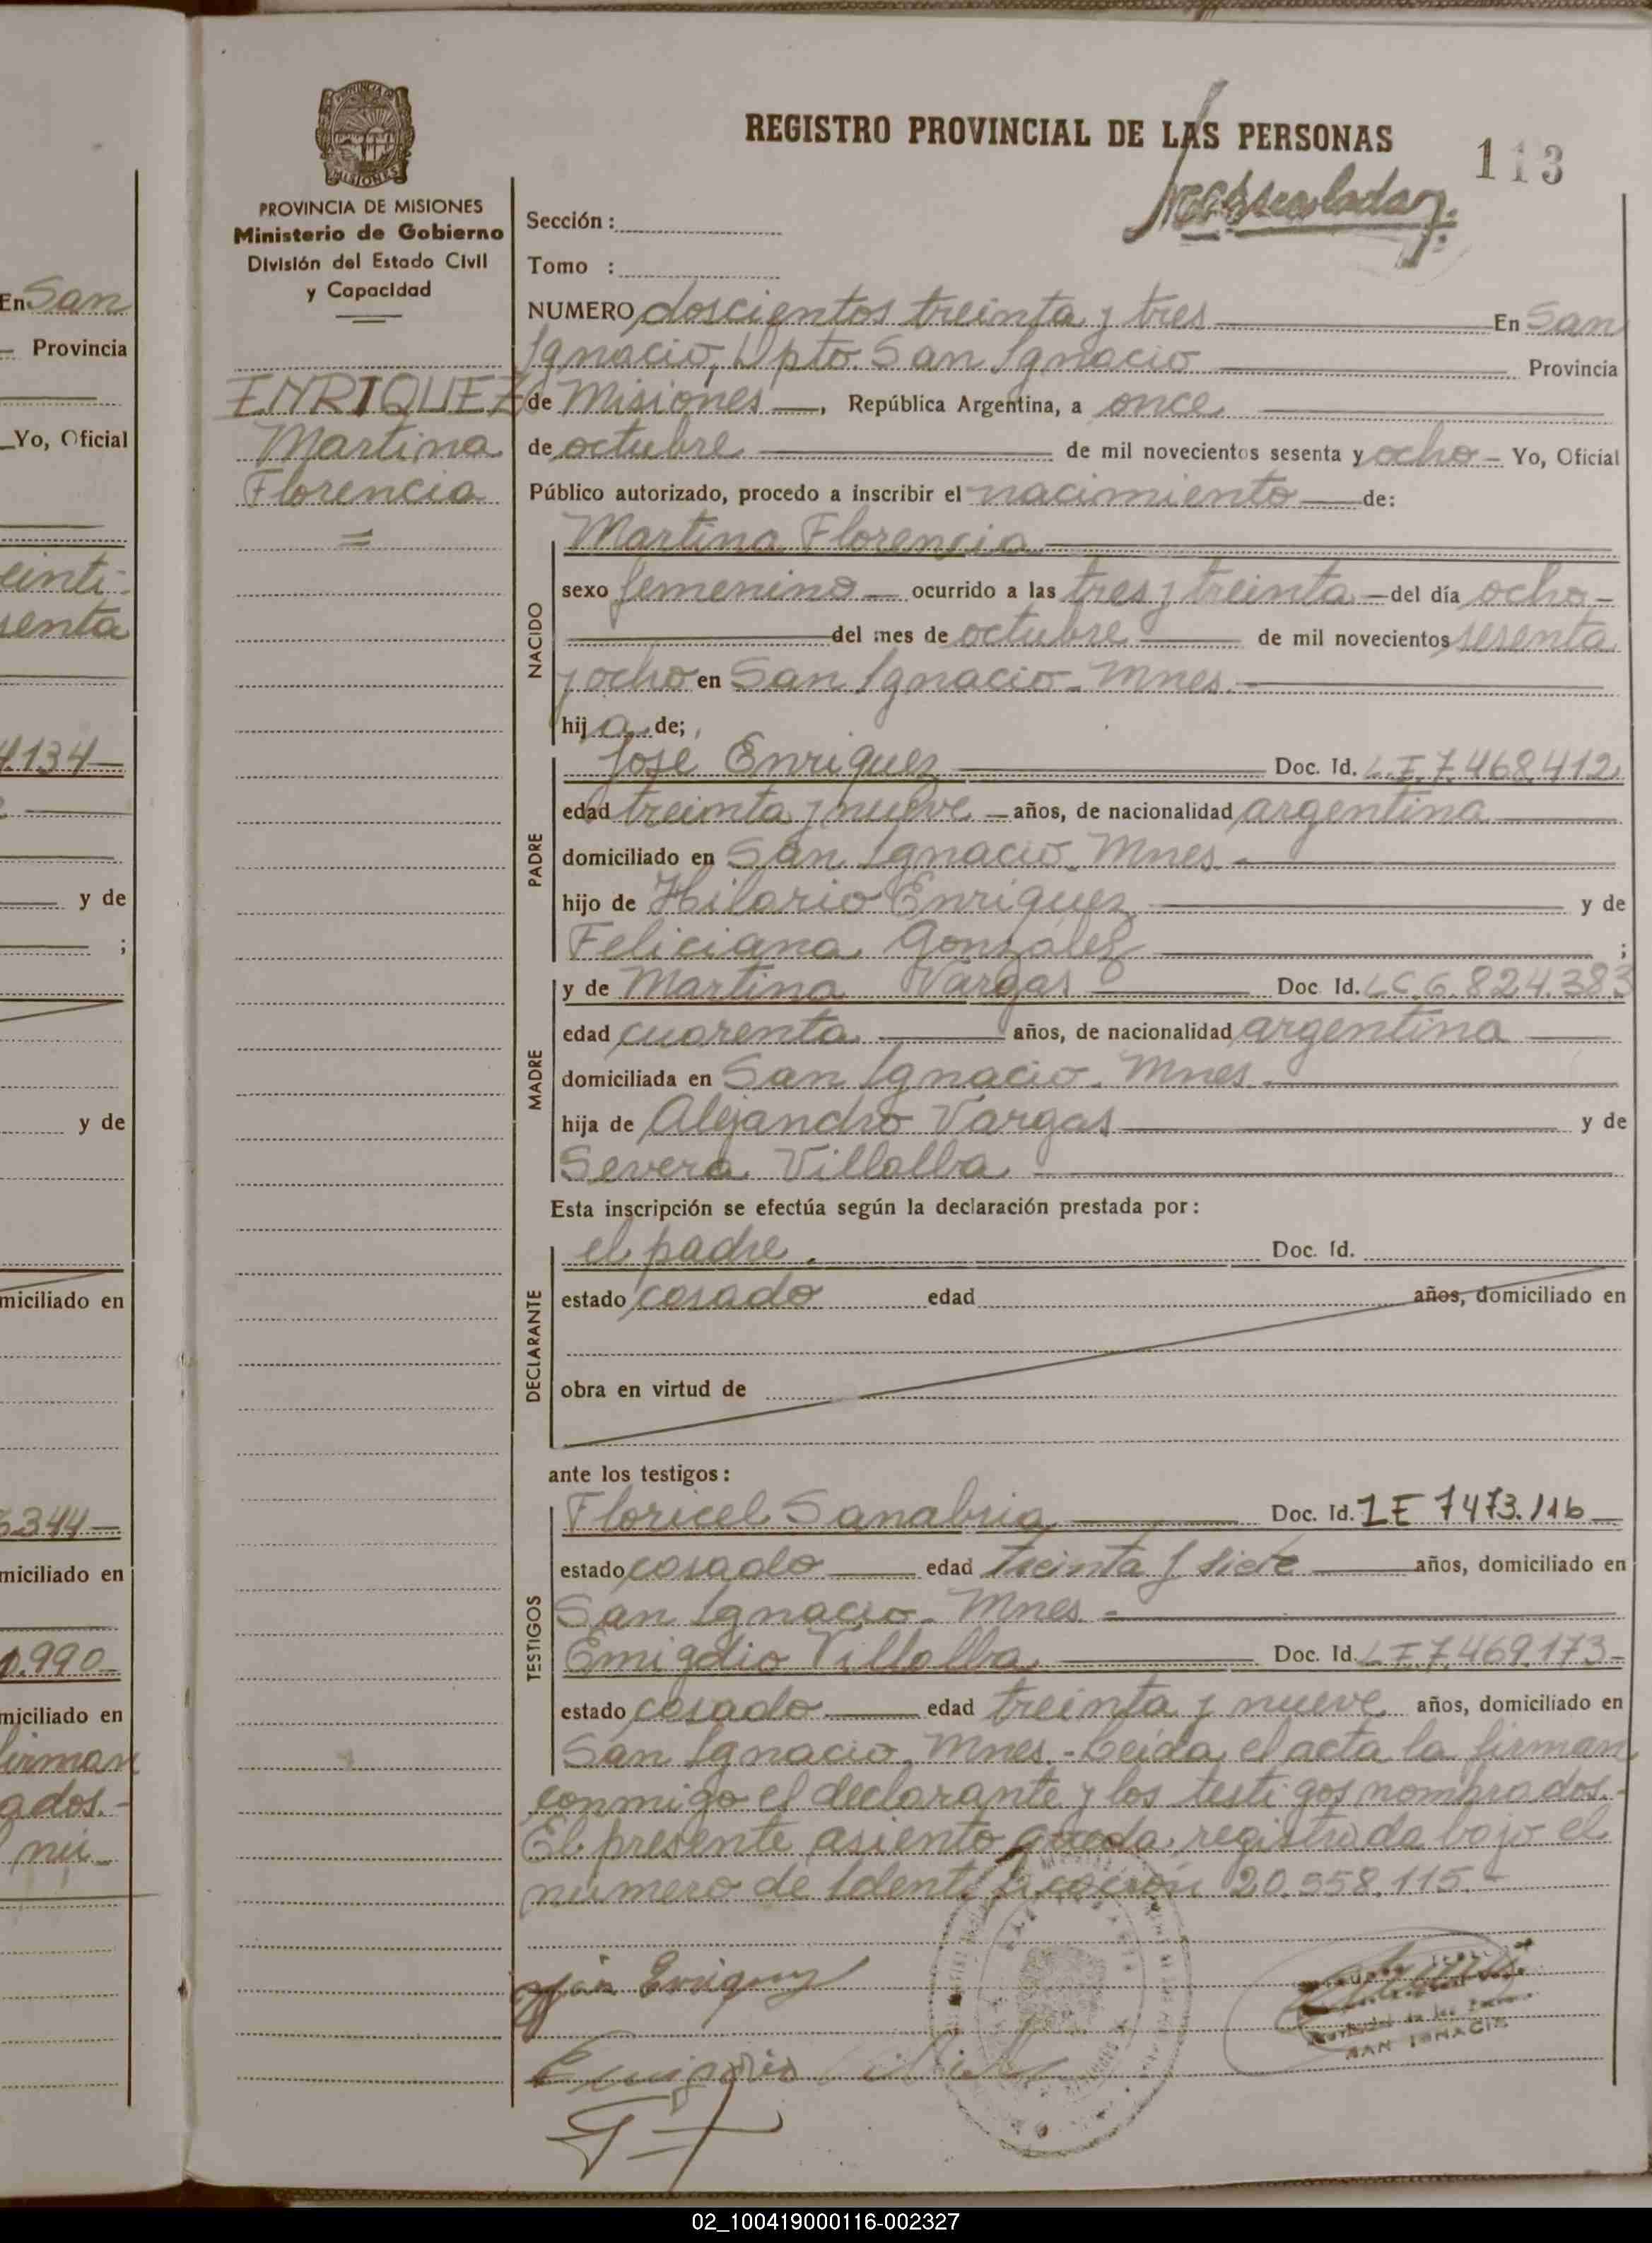 REGISTRO PROVINCIAL DE LAS PERSONAS
113
PROVINCIA DE MISIONES
MISIONES
PROVINCIA DE MISIONES
Ministerio de Gobierno
División del Estado Civil
y Capacidad
ENRIQUEZ
Martina
Florencia
Sección :
Tomo :
NUMERO doscientos treinta y tres En San
Ignacio, Dpto. San Ignacio Provincia
de Misiones, República Argentina, a once
de octubre de mil novecientos sesenta y ocho - Yo, Oficial
Público autorizado, procedo a inscribir el nacimiento de:
NACIDO
Martina Florencia
sexo femenino ocurrido a las tres y treinta del día ocho
del mes de octubre de mil novecientos sesenta
y ocho en San Ignacio - Mnes.
hija de;
PADRE
José Enriquez Doc. Id. L.E. 7.468.412
edad treinta y nueve años, de nacionalidad argentina
domiciliado en San Ignacio - Mnes.
hijo de Hilario Enriquez y de
Feliciana González ;
MADRE
y de Martina Vargas Doc. Id. L.C. 6.824.383
edad cuarenta años, de nacionalidad argentina
domiciliada en San Ignacio - Mnes.
hija de Alejandro Vargas y de
Severa Villalba
Esta inscripción se efectúa según la declaración prestada por:
DECLARANTE
el padre. Doc. Id.
estado casado edad años, domiciliado en
obra en virtud de
ante los testigos:
TESTIGOS
Floricel Sanabria Doc. Id. LE 7473.116
estado casado edad treinta y siete años, domiciliado en
San Ignacio - Mnes.
Emigdio Villalba Doc. Id. L.E. 7.469.173
estado casado edad treinta y nueve años, domiciliado en
San Ignacio, Mnes. - Leída el acta la firman
conmigo el declarante y los testigos nombrados.-
El presente asiento queda registrado bajo el
número de Identificación 20.558.115.-
SAN IGNACIO
En San
Provincia
Yo, Oficial
einti-
senta
4.134
y de
;
y de
miciliado en
3.344
miciliado en
0.990
miciliado en
firman
ados.-
nú
02_100419000116-002327